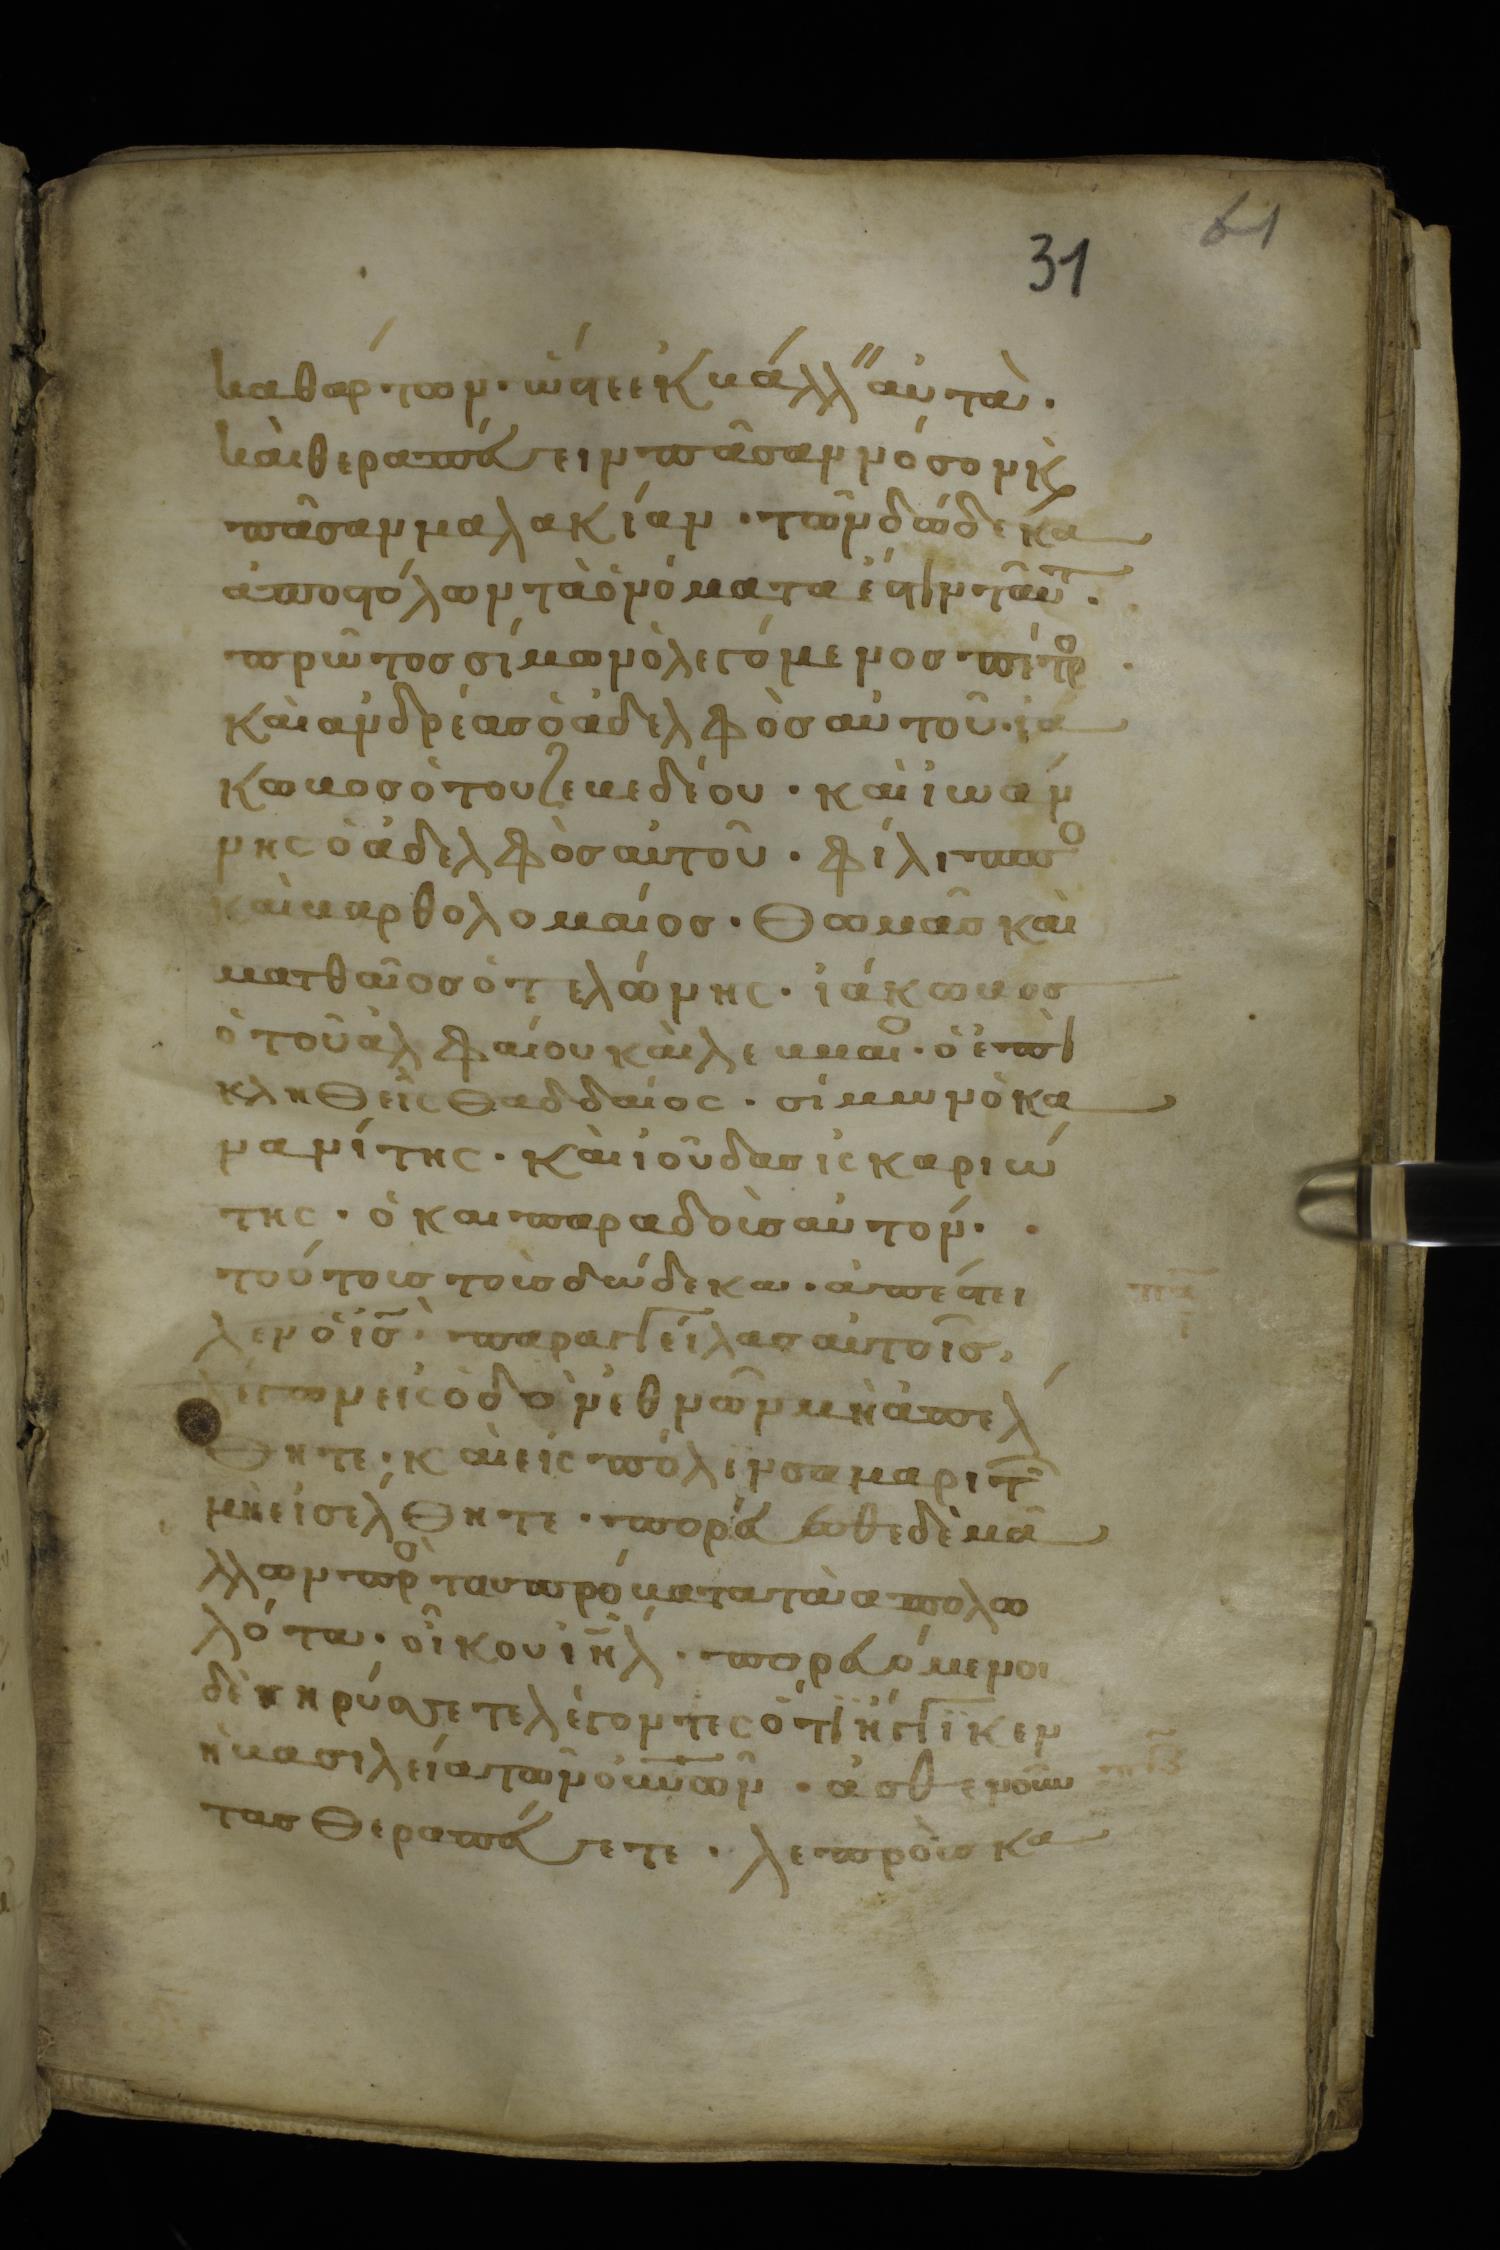 31 61
καθάρτων· ὥστε ἐκβάλλ αὐτὰ·
καὶ θεραπεύειν πᾶσαν νόσον κ
πᾶσαν μαλακίαν· τῶν δώδεκα
ἀποστόλων τὰ ὀνόματα ἐστὶν ταῦτ·
πρῶτος σίμων ὁ λεγόμενος πέτρο·
καὶ ἀνδρέας ὁ ἀδελφὸς αὐτοῦ· ἰά
κωβος ὁ του ζεβεδέου· καὶ ἰωάν
νης ὁ ἀδελφὸς αὐτοῦ· φίλιππο
καὶ βαρθολομαίος· Θωμᾶς καὶ
ματθαῖος ὁ τελώνης· ἰάκωβος
ὁ τοῦ ἀλφαίου καὶ λεββαιο· ὁ ἐπι
κληθεὶς θαδδαίος· σίμων ὁ κα
νανίτης· καὶ ἰούδας ἰσκαριώ
της· ὁ και παραδοὺς αὐτόν·
τούτους τοὺς δώδεκα· ἀπέστει
λεν ὁ ις· παραγγείλας αὐτοῖς,
λέγων εἰς ὁδὸν ἐθνῶν μὴ ἀπέλ
θητε· καὶ εἰς πόλιν σαμαριτ
μὴ εἰσέλθητε· πορεύεσθε δὲ μᾶ
λλον προ τα πρόβατα τὰ απολω
λότα· οἴκου ιηλ· πορευόμενοι
δὲ κηρύσσετε λέγοντες ὅτι ἤγγικεν
ἡ βασιλεία τῶν ουνων· ἀσθενοῦν
τας θεραπεύετε· λεπροὺς κα